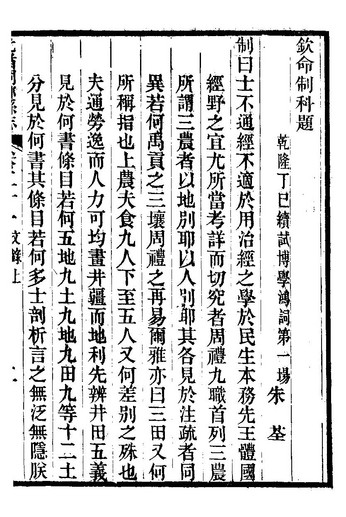 欽命制科題
乾隆丁巳續試博學鴻詞第一場
朱荃
制曰士不通經不適於用治經之學於民生本務先王體國
經野之宜尤所當考詳而切究者周禮九職首列三農
所謂三農者以地別耶以人別耶其各見於注疏者同
異若何禹貢之三壤周禮之再易爾雅亦曰三田又何
所稱指也上農夫食九人下至五人又何差別之殊也
夫通勞逸而人力可均畫井疆而地利先辨井田五義
見於何書條目若何五地九土九地九田九等十二土
分見於何書其條目若何多士剖析言之無泛無隱朕